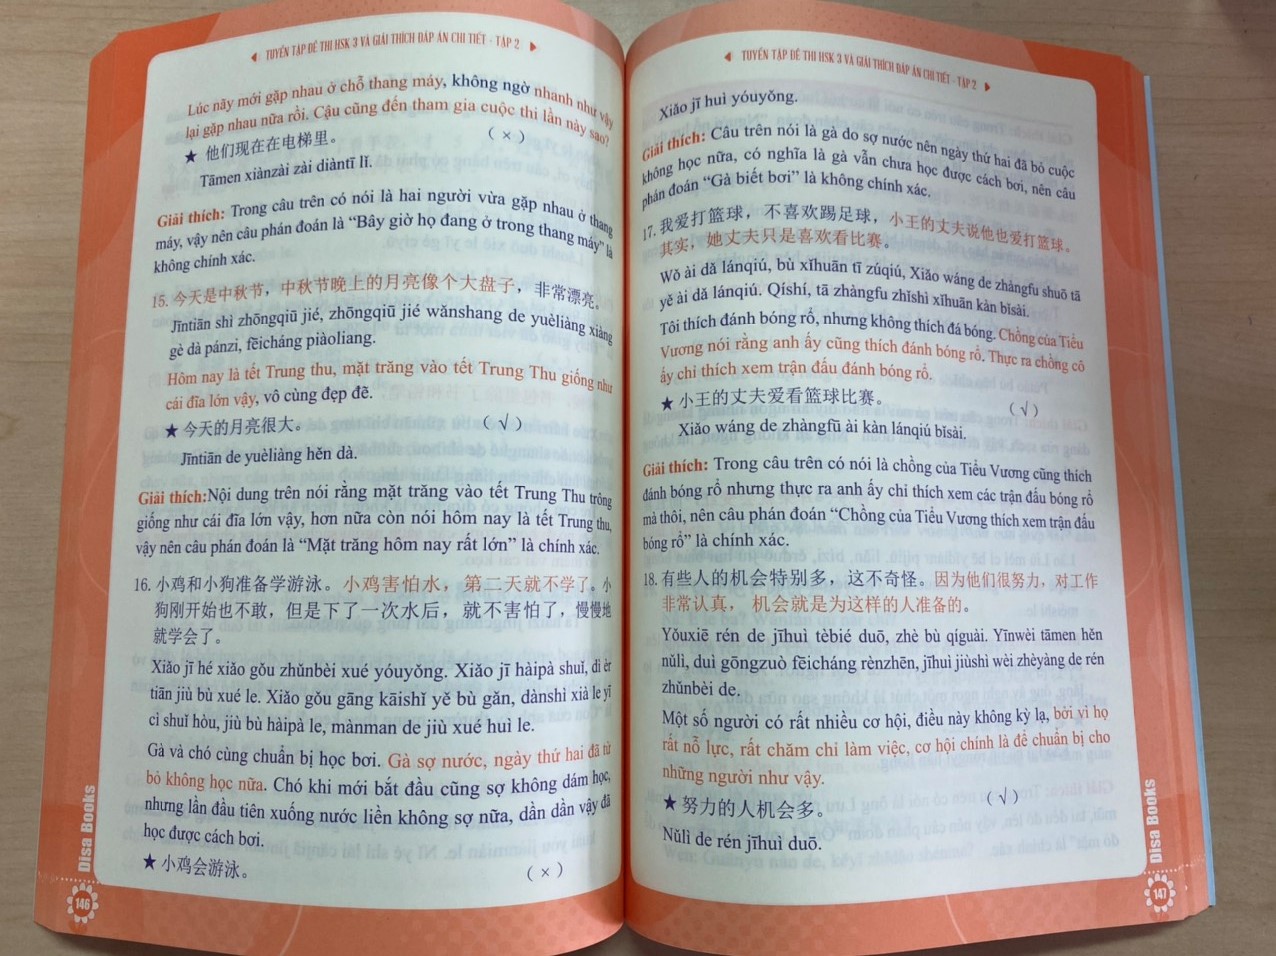 ◀ TUYỂN TẬP ĐỀ THI HSK 3 VÀ GIẢI THÍCH ĐÁP ÁN CHI TIẾT - TẬP 2 ▶
Lúc nãy mới gặp nhau ở chỗ thang máy, không ngờ nhanh như vậy
lại gặp nhau nữa rồi. Cậu cũng đến tham gia cuộc thi lần này sao?
★ 他们现在在电梯里。 ( × )
Tāmen xiànzài zài diàntī lǐ.
Giải thích: Trong câu trên có nói là hai người vừa gặp nhau ở thang
máy, vậy nên câu phán đoán là “Bây giờ họ đang ở trong thang máy” là
không chính xác.
15. 今天是中秋节，中秋节晚上的月亮像个大盘子，非常漂亮。
Jīntiān shì zhōngqiū jié, zhōngqiū jié wǎnshang de yuèliàng xiàng
gè dà pánzi, fēicháng piàoliang.
Hôm nay là tết Trung thu, mặt trăng vào tết Trung Thu giống như
cái đĩa lớn vậy, vô cùng đẹp đẽ.
★ 今天的月亮很大。 ( √ )
Jīntiān de yuèliàng hěn dà.
Giải thích:Nội dung trên nói rằng mặt trăng vào tết Trung Thu trông
giống như cái đĩa lớn vậy, hơn nữa còn nói hôm nay là tết Trung thu,
vậy nên câu phán đoán là “Mặt trăng hôm nay rất lớn” là chính xác.
16. 小鸡和小狗准备学游泳。小鸡害怕水，第二天就不学了。小
狗刚开始也不敢，但是下了一次水后，就不害怕了，慢慢地
就学会了。
Xiǎo jī hé xiǎo gǒu zhǔnbèi xué yóuyǒng. Xiǎo jī hàipà shuǐ, dì èr
tiān jiù bù xué le. Xiǎo gǒu gāng kāishǐ yě bù gǎn, dànshì xià le yī
cì shuǐ hòu, jiù bù hàipà le, mànman de jiù xué huì le.
Gà và chó cùng chuẩn bị học bơi. Gà sợ nước, ngày thứ hai đã từ
bỏ không học nữa. Chó khi mới bắt đầu cũng sợ không dám học,
nhưng lần đầu tiên xuống nước liền không sợ nữa, dần dần vậy đã
học được cách bơi.
★ 小鸡会游泳。 ( × )
Disa Books
146
◀ TUYỂN TẬP ĐỀ THI HSK 3 VÀ GIẢI THÍCH ĐÁP ÁN CHI TIẾT - TẬP 2 ▶
Xiǎo jī huì yóuyǒng.
Giải thích: Câu trên nói là gà do sợ nước nên ngày thứ hai đã bỏ cuộc
không học nữa, có nghĩa là gà vẫn chưa học được cách bơi, nên câu
phán đoán “Gà biết bơi” là không chính xác.
17. 我爱打篮球，不喜欢踢足球，小王的丈夫说他也爱打篮球。
其实，她丈夫只是喜欢看比赛。
Wǒ ài dǎ lánqiú, bù xǐhuān tī zúqiú, Xiǎo wáng de zhàngfu shuō tā
yě ài dǎ lánqiú. Qíshí, tā zhàngfu zhǐshì xǐhuān kàn bǐsài.
Tôi thích đánh bóng rổ, nhưng không thích đá bóng. Chồng của Tiểu
Vương nói rằng anh ấy cũng thích đánh bóng rổ. Thực ra chồng cô
ấy chỉ thích xem trận đấu đánh bóng rổ.
★ 小王的丈夫爱看篮球比赛。 ( √ )
Xiǎo wáng de zhàngfū ài kàn lánqiú bǐsài.
Giải thích: Trong câu trên có nói là chồng của Tiểu Vương cũng thích
đánh bóng rổ nhưng thực ra anh ấy chỉ thích xem các trận đấu bóng rổ
mà thôi, nên câu phán đoán “Chồng của Tiểu Vương thích xem trận đấu
bóng rổ” là chính xác.
18. 有些人的机会特别多，这不奇怪。因为他们很努力，对工作
非常认真， 机会就是为这样的人准备的。
Yǒuxiē rén de jīhuì tèbié duō, zhè bù qíguài. Yīnwèi tāmen hěn
nǔlì, duì gōngzuò fēicháng rènzhēn, jīhuì jiùshì wèi zhèyàng de rén
zhǔnbèi de.
Một số người có rất nhiều cơ hội, điều này không kỳ lạ, bởi vì họ
rất nỗ lực, rất chăm chỉ làm việc, cơ hội chính là để chuẩn bị cho
những người như vậy.
★ 努力的人机会多。 ( √ )
Nǔlì de rén jīhuì duō.
Disa Books
147